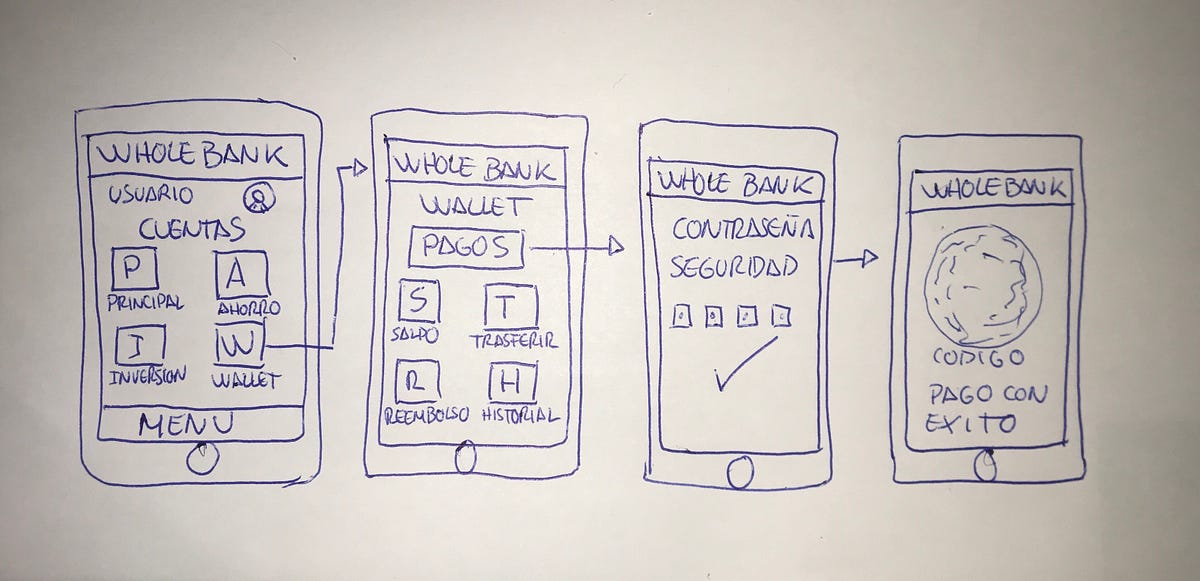 WHOLE BANK
USUARIO
CUENTAS
P A
PRINCIPAL AHORRO
I W
INVERSION WALLET
MENU
WHOLE BANK
WALLET
PAGOS
S T
SALDO TRASFERIR
R H
REEMBOLSO HISTORIAL
WHOLE BANK
CONTRASEÑA
SEGURIDAD
WHOLE BANK
CODIGO
PAGO CON
EXITO